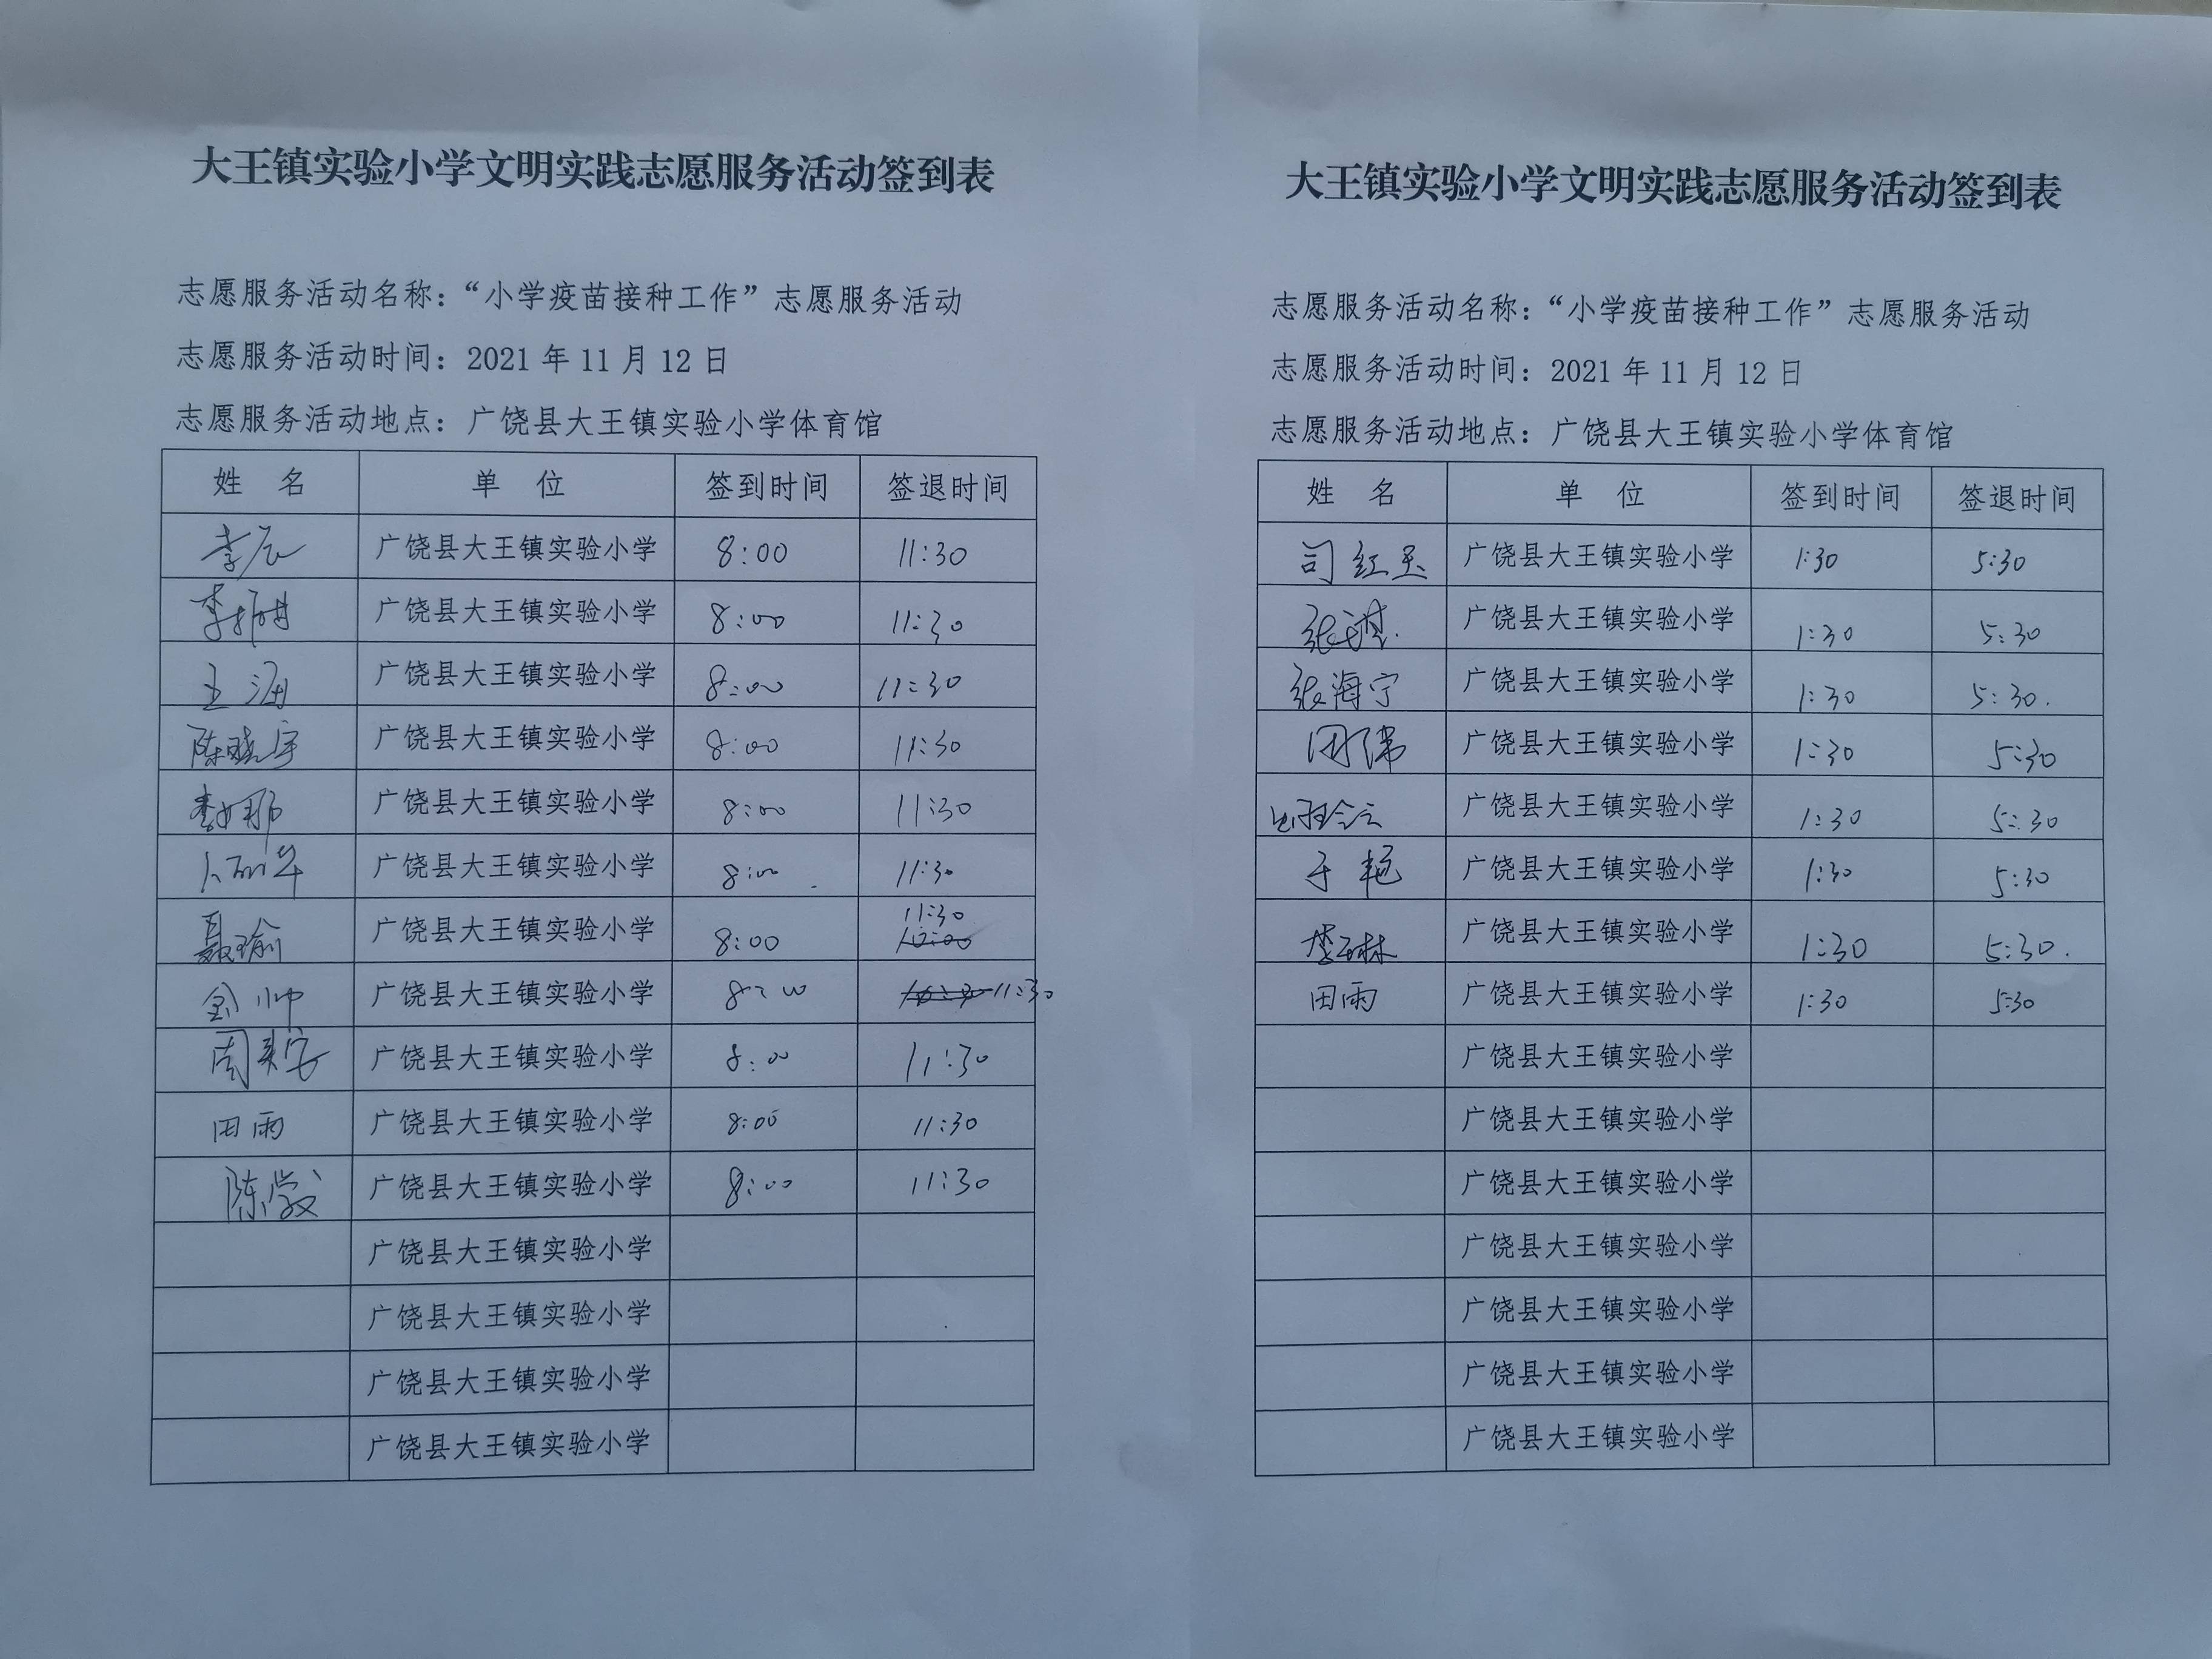 大王镇实验小学文明实践志愿服务活动签到表
志愿服务活动名称：“小学疫苗接种工作”志愿服务活动
志愿服务活动时间：2021 年 11 月 12 日
志愿服务活动地点：广饶县大王镇实验小学体育馆
姓 名 单 位 签到时间 签退时间
李辰 广饶县大王镇实验小学 8:00 11:30
广饶县大王镇实验小学 8:00 11:30
王海 广饶县大王镇实验小学 8:00 11:30
陈晓宇 广饶县大王镇实验小学 8:00 11:30
李娜 广饶县大王镇实验小学 8:00 11:30
广饶县大王镇实验小学 8:00 11:30
聂瑜 广饶县大王镇实验小学 8:00 11:30
广饶县大王镇实验小学 8:00 11:30
周美宏 广饶县大王镇实验小学 8:00 11:30
田雨 广饶县大王镇实验小学 8:00 11:30
陈学敏 广饶县大王镇实验小学 8:00 11:30
广饶县大王镇实验小学
广饶县大王镇实验小学
广饶县大王镇实验小学
广饶县大王镇实验小学
大王镇实验小学文明实践志愿服务活动签到表
志愿服务活动名称：“小学疫苗接种工作”志愿服务活动
志愿服务活动时间：2021 年 11 月 12 日
志愿服务活动地点：广饶县大王镇实验小学体育馆
姓 名 单 位 签到时间 签退时间
司红玉 广饶县大王镇实验小学 1:30 5:30
广饶县大王镇实验小学 1:30 5:30
张海宁 广饶县大王镇实验小学 1:30 5:30.
田伟 广饶县大王镇实验小学 1:30 5:30
广饶县大王镇实验小学 1:30 5:30
于艳 广饶县大王镇实验小学 1:30 5:30
李琳 广饶县大王镇实验小学 1:30 5:30.
田雨 广饶县大王镇实验小学 1:30 5:30
广饶县大王镇实验小学
广饶县大王镇实验小学
广饶县大王镇实验小学
广饶县大王镇实验小学
广饶县大王镇实验小学
广饶县大王镇实验小学
广饶县大王镇实验小学